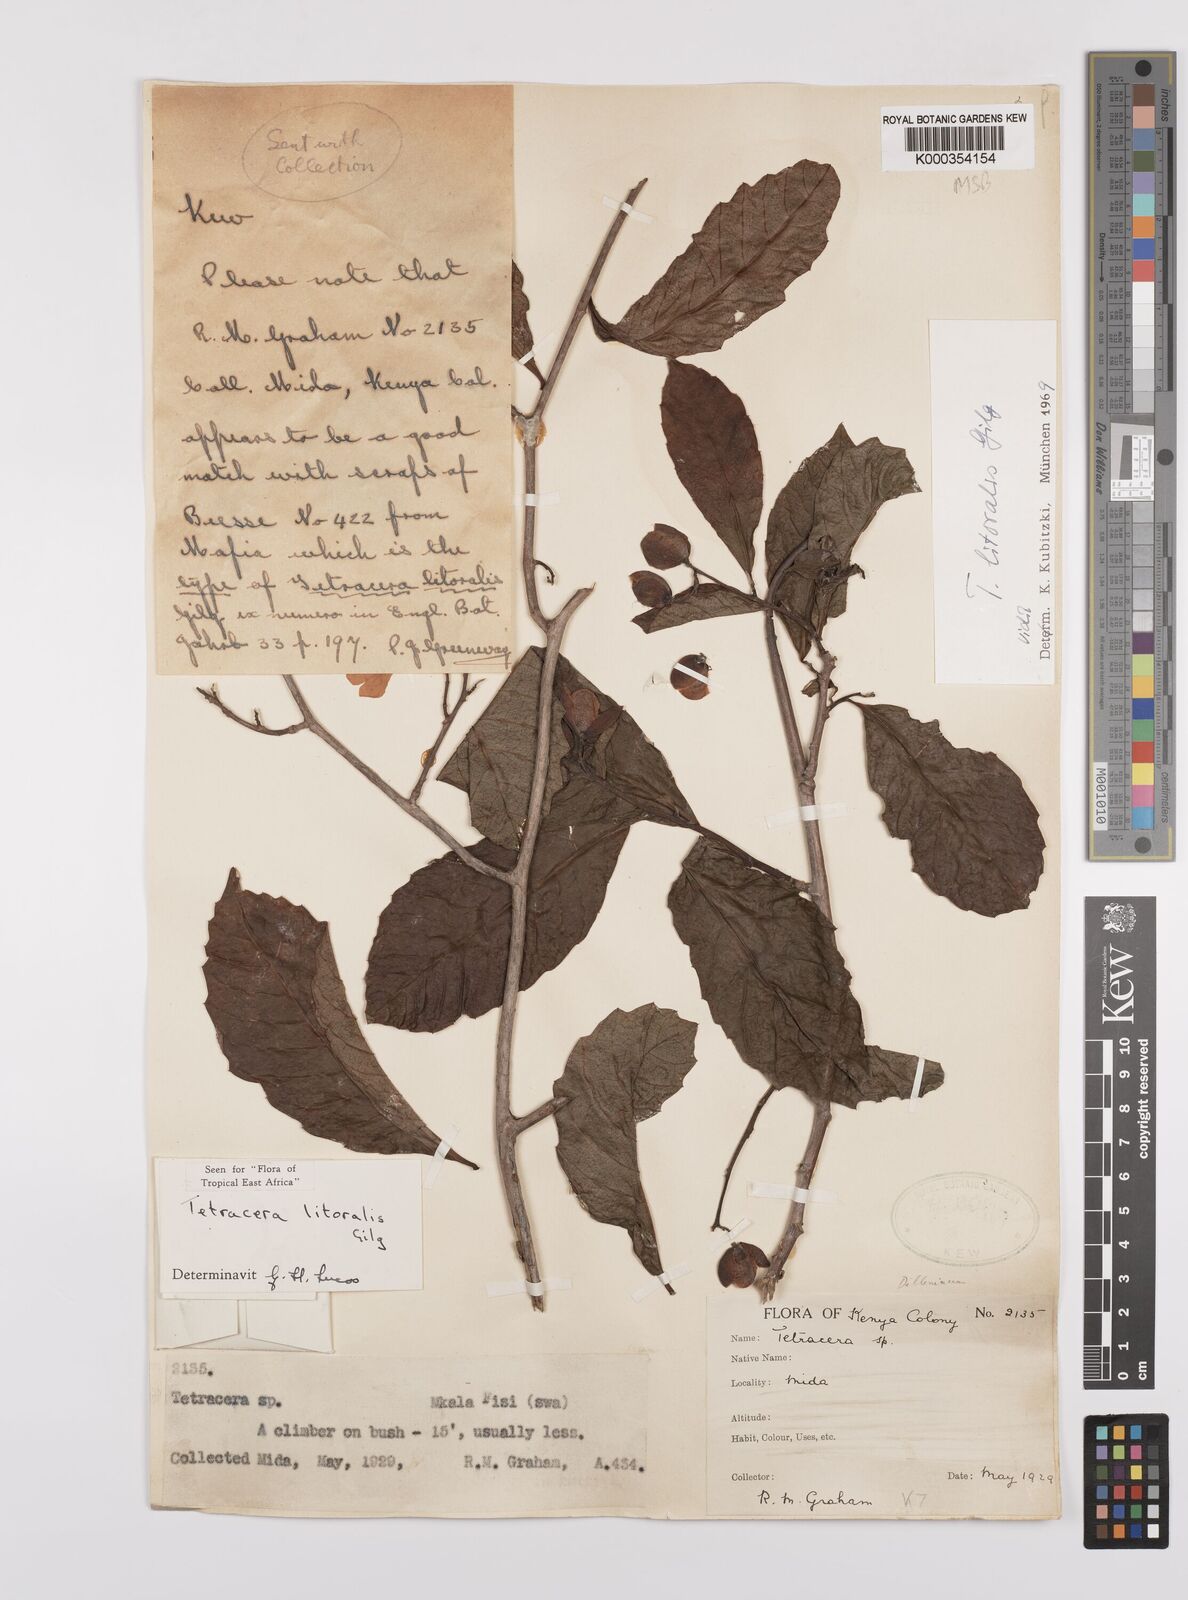 Sent with
Collection
Kew
Please note that
R. M. Graham No 2135
Coll. Mida, Kenya Col.
appears to be a good
match with scraps of
No 422 from
Mafia which is the
type of Tetracera litoralis
Gilg ex numero in Engl. Bot.
Jahrb 33 p. 197. P. J. Greenway
ROYAL BOTANIC GARDENS KEW
K000354154
MSB
T. litoralis Gilg
vidit
Determ. K. Kubitzki, München 1969
Seen for "Flora of
Tropical East Africa"
Tetracera litoralis
Gilg
Determinavit G. Ll. Lucas
2135.
Tetracera sp. Mkala Fisi (swa)
A climber on bush - 15', usually less.
Collected Mida, May, 1929, R.M. Graham, A.434.
KEW
FLORA OF Kenya Colony No. 2135
Name: Tetracera sp.
Native Name:
Locality: Mida
Altitude:
Habit, Colour, Uses, etc.
Collector: Date: May 1929
R. M. Graham K7
inches
centimetres
Density
Don Williams
M001010
Royal Botanic Gardens
Kew
0 1 2 3 4 5 6 7 8 9 10
cm
copyright reserved